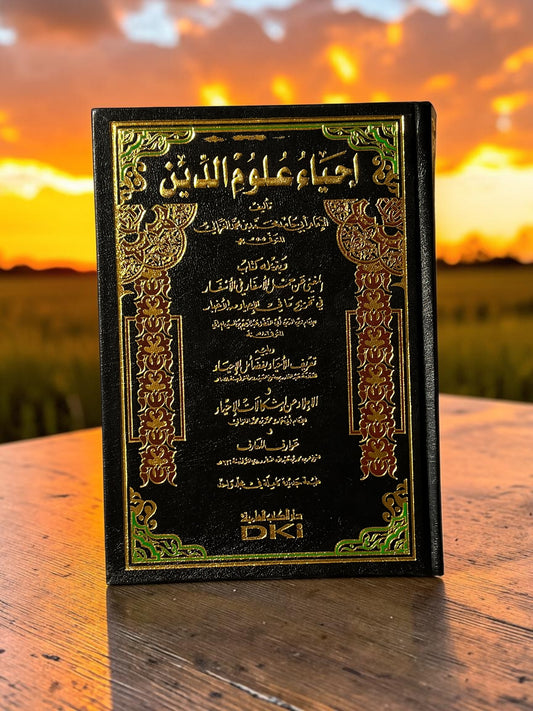 إحياء علوم الدين
تأليف
الإمام أبي حامد محمد بن محمد الغزالي
المتوفى ٥٠٥ هـ
وبذيله كتاب
المغني عن حمل الأسفار في الأسفار
في تخريج ما في الإحياء من الأخبار
وبليه
تعريف الأحياء بفضائل الإحياء
و
الإملاء عن إشكالات الإحياء
و
عوارف المعارف
طبعة جديدة كاملة في مجلد واحد
دار الكتب العلمية
DKi